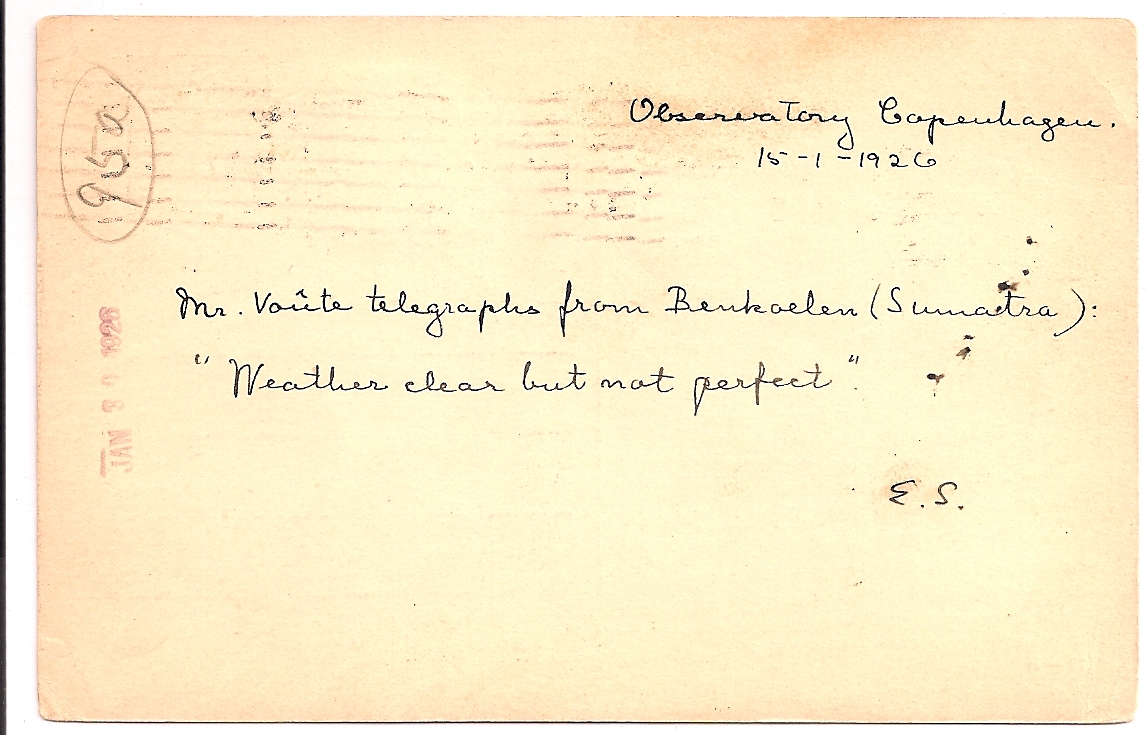 Observatory Copenhagen.
15-1-1926
Mr. Voûte telegraphs from Benkoelen (Sumatra):
"Weather clear but not perfect".
E.S.
JAN 30 1926